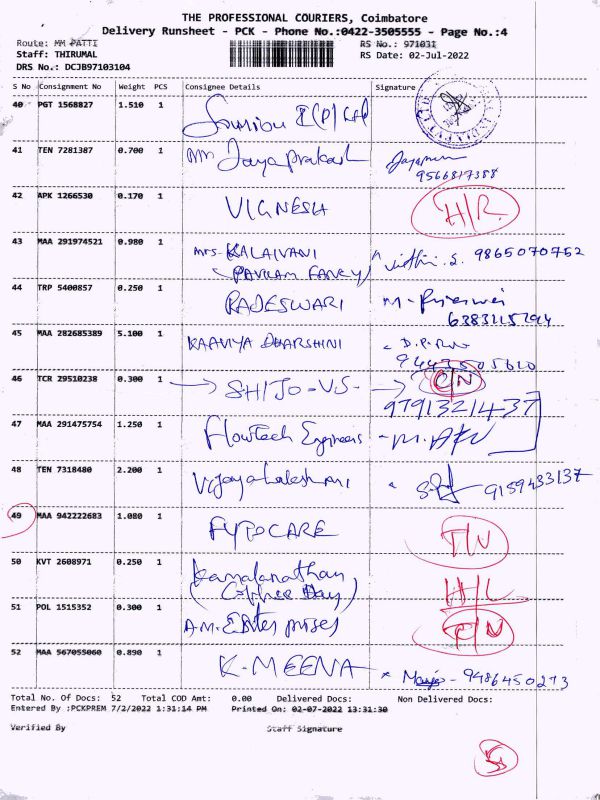 THE PROFESSIONAL COURIERS, Coimbatore
Delivery Runsheet - PCK - Phone No.:0422-3505555 - Page No.:4
Route: MM PATTI RS No.: 971031
Staff: THIRUMAL RS Date: 02-Jul-2022
DRS No.: DCJB97103104
S No Consignment No Weight PCS Consignee Details Signature
40 PGT 1568827 1.510 1
41 TEN 7281387 0.700 1 Mr Jayaprakash
9566817388
42 APK 1266530 0.170 1 VIGNESH H/R
43 MAA 291974521 0.980 1 Mrs. KALAIVANI 9865070752
(PAVRAM FANCY)
44 TRP 5400857 0.250 1 RAJESWARI
45 MAA 282685389 5.100 1 KAAVIYA DHARSHINI
46 TCR 29510238 0.300 1 SHIJO-VS- C/N
9791321437
47 MAA 291475754 1.250 1 Flowtech Engineers
48 TEN 7318480 2.200 1 Vijayalakshmi 9159433137
49 MAA 942222683 1.080 1 FYTOCARE T/N
50 KVT 2608971 0.250 1 Kamalanathan
(Coffee Day) H/L
51 POL 1515352 0.300 1 A.M. Enterprises C/N
52 MAA 567055060 0.890 1 K-MEENA - 9486450273
Total No. Of Docs: 52 Total COD Amt: 0.00 Delivered Docs: Non Delivered Docs:
Entered By :PCKPREM 7/2/2022 1:31:14 PM Printed On: 02-07-2022 13:31:30
Verified By Staff Signature